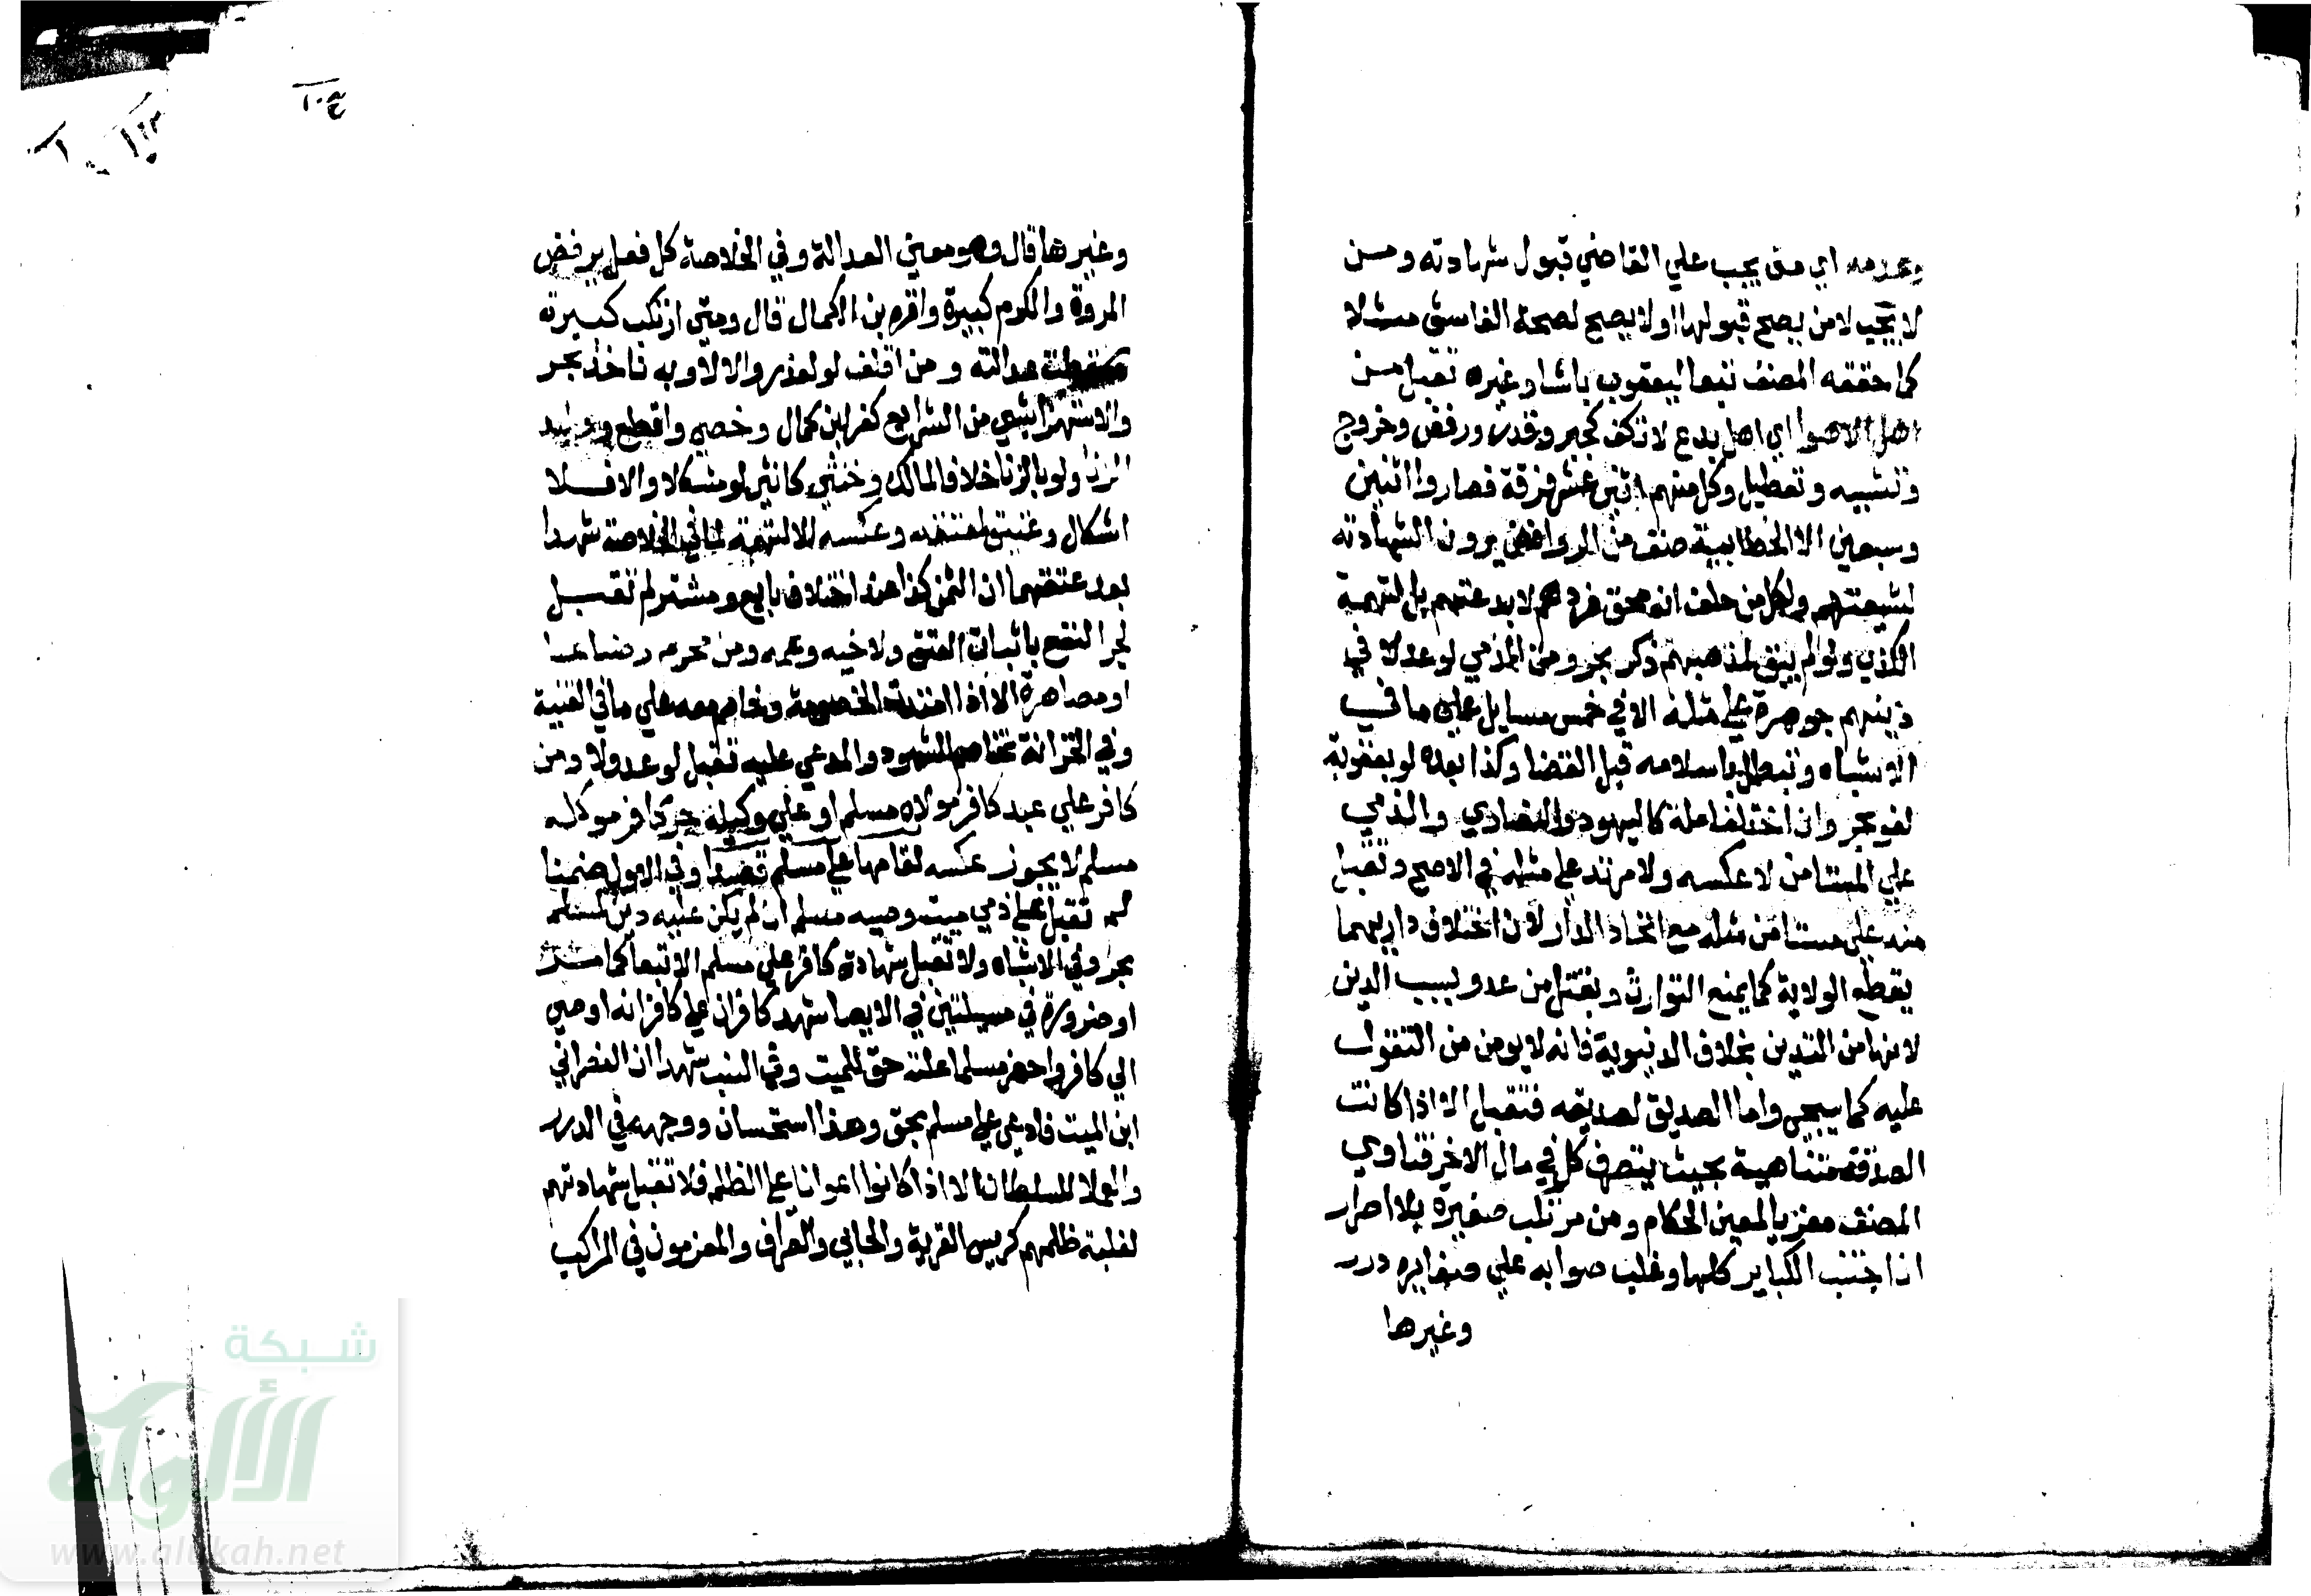 وعدمه اي من يجب علي القاضي قبول شهادته ومن
لا يجب لا من يصح قبولها او لا يصح لصحة الفاسق مثلا
كما حققه المصنف تبعا ليعقوب باشا وغيره تقبل من
اهل الاهوا اي اهل بدع لا تكفر كجبر وقدر ورفض وخروج
وتشبيه وتعطيل وكل منهم اثني عشر فرقة فصاروا اثنين
وسبعين الا الخطابية صنف من الروافض يرون الشهادة
لشيعتهم ولكل من حلف انه محق فردهم لا لبدعتهم بل لتهمة
الكذب ولم يبق لمذهبهم ذكر بحر ومن الذمي لو عدلا في
دينهم جوهرة علي مثله الا في خمس مسايل علي ما في
الاشباه وتبطل باسلامه قبل القضا وكذا بعده لو بعقوبة
لقو بحر وان اختلفا ملة كاليهود والنصاري والذمي
علي المستامن لا عكسه ولا مرتد علي مثله في الاصح وتقبل
منه علي مستامن مثله مع اتحاد الدار لان اختلاف داريهما
يقطع الولاية كما يمنع التوارث وتقبل من عدو بسبب الدين
لانها من التدين بخلاف الدنيوية فانه لا يومن من التقول
عليه كما سيجي واما الصديق لصديقه فتقبل الا اذا كانت
الصدقة متناهية بحيث يتصرف كل في مال الاخر فتاوي
المصنف معزيا لمعين الحكام ومن مرتكب صغيرة بلا اصرار
ان اجتنب الكباير كلها وغلب صوابه علي صغايره درر
وغيرها
وغيرها قال وهو معني العدالة وفي الخلاصة كل فعل يرفض
المروة والكرم كبيرة واقره بن الكمال قال ومتي ارتكب كبيرة
سقطت عدالته ومن اقلف لو لعذر والا لا وبه ناخذ بحر
والاستهزا بشي من الشرايع كفر ابن كمال وخصي واقطع وولد
الزنا ولو بالزنا خلافا لمالك وخنثي كانثي لو مشكلا والا فلا
اشكال وعتيق لمعتقه وعكسه الا لتهمة لما في الخلاصة شهدا
بعد عتقهما ان الثمن كذا عند اختلاف بايع ومشتر لم تقبل
لجرا النفع باثبات العتق ولاخيه وعمه ومن محرم رضاعا
او مصاهرة الا اذا امتدت الخصومة وخاصم معه علي ما في القنية
وفي الخزانة تخاصم الشهود والمدعي عليه تقبل لو عدولا ومن
كافر علي عبد كافر مولاه مسلم او علي وكيل حر كافر موكله
مسلم لا يجوز عكسه لقيامها علي مسلم قصدا وفي الاول ضمنا
تقبل علي ذمي ميت وصيه مسلم ان لم يكن عليه دين لمسلم
بحر وفي الاشباه ولا تقبل شهادة كافر علي مسلم الا تبعا كما مر
او ضرورة في مسيلتين في الايصا شهد كافران علي كافر انه اوصي
الي كافر واحضر مسلما عليه حق للميت وفي النسب شهدا ان النصراني
ابن الميت فادعي علي مسلم بحق وهذا استحسان ووجهه في الدرر
والعمال للسلطان الا اذا كانوا اعوانا علي الظلم فلا تقبل شهادتهم
لغلبة ظلمهم كريس القرية والجابي والصراف والمعزمون في المراكب
شبكة
الألوكة
www.alukah.net